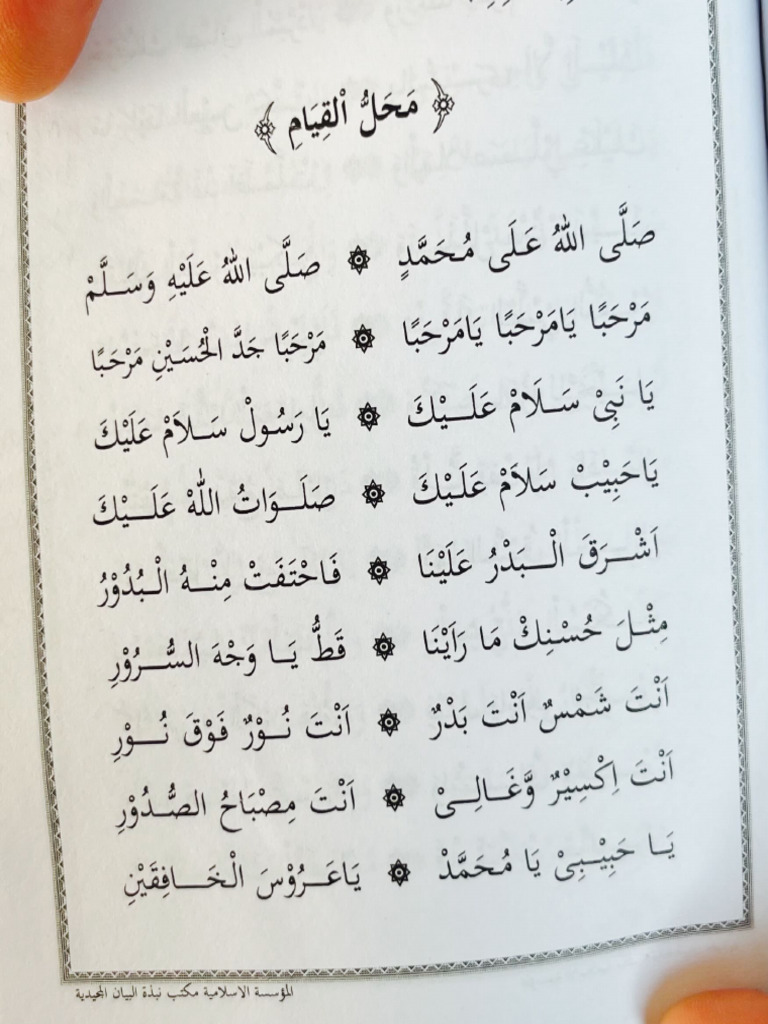 مَحَلُّ الْقِيَامِ
صَلَّى اللهُ عَلَى مُحَمَّدٍ ۞ صَلَّى اللهُ عَلَيْهِ وَسَلَّمْ
مَرْحَبًا يَامَرْحَبًا يَامَرْحَبًا ۞ مَرْحَبًا جَدَّ الْحُسَيْنِ مَرْحَبًا
يَا نَبِىْ سَلَامْ عَلَيْكَ ۞ يَا رَسُولْ سَلاَمْ عَلَيْكَ
يَاحَبِيْبْ سَلاَمْ عَلَيْكَ ۞ صَلَوَاتُ اللهْ عَلَيْكَ
اَشْرَقَ الْبَدْرُ عَلَيْنَا ۞ فَاحْتَفَتْ مِنْهُ الْبُدُوْرُ
مِثْلَ حُسْنِكْ مَا رَاَيْنَا ۞ قَطُّ يَا وَجْهَ السُّرُوْرِ
اَنْتَ شَمْسٌ اَنْتَ بَدْرٌ ۞ اَنْتَ نُوْرٌ فَوْقَ نُوْرِ
اَنْتَ اِكْسِيْرٌ وَّغَالِىْ ۞ اَنْتَ مِصْبَاحُ الصُّدُوْرِ
يَا حَبِيْبِىْ يَا مُحَمَّدْ ۞ يَاعَرُوْسَ الْخَافِقَيْنِ
المؤسسة الاسلامية مكتب نبذة البيان المجيدية